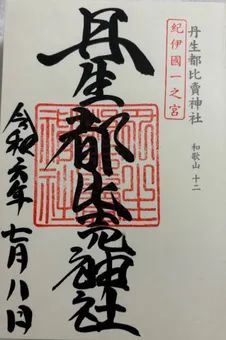 丹生都比賣神社
和歌山 十二
紀伊國一之宮
丹生都比売神社
令和元年
七月八日